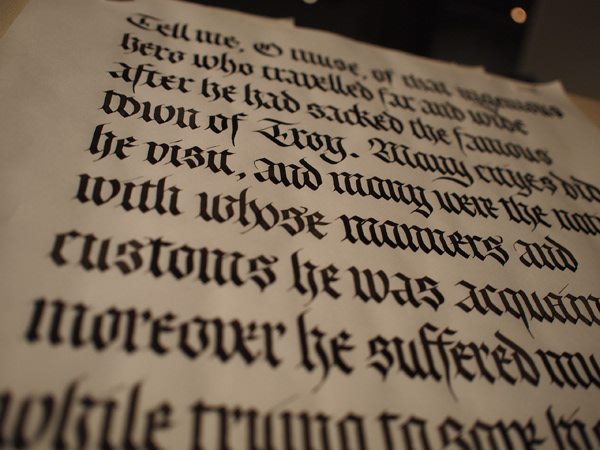 Tell me, O muse, of that ingenious
hero who travelled far and wide
after he had sacked the famous
town of Troy. Many cityes did
he visit, and many were the nat
with whose manners and
customs he was acquain
moreover he suffered mu
while trying to save his